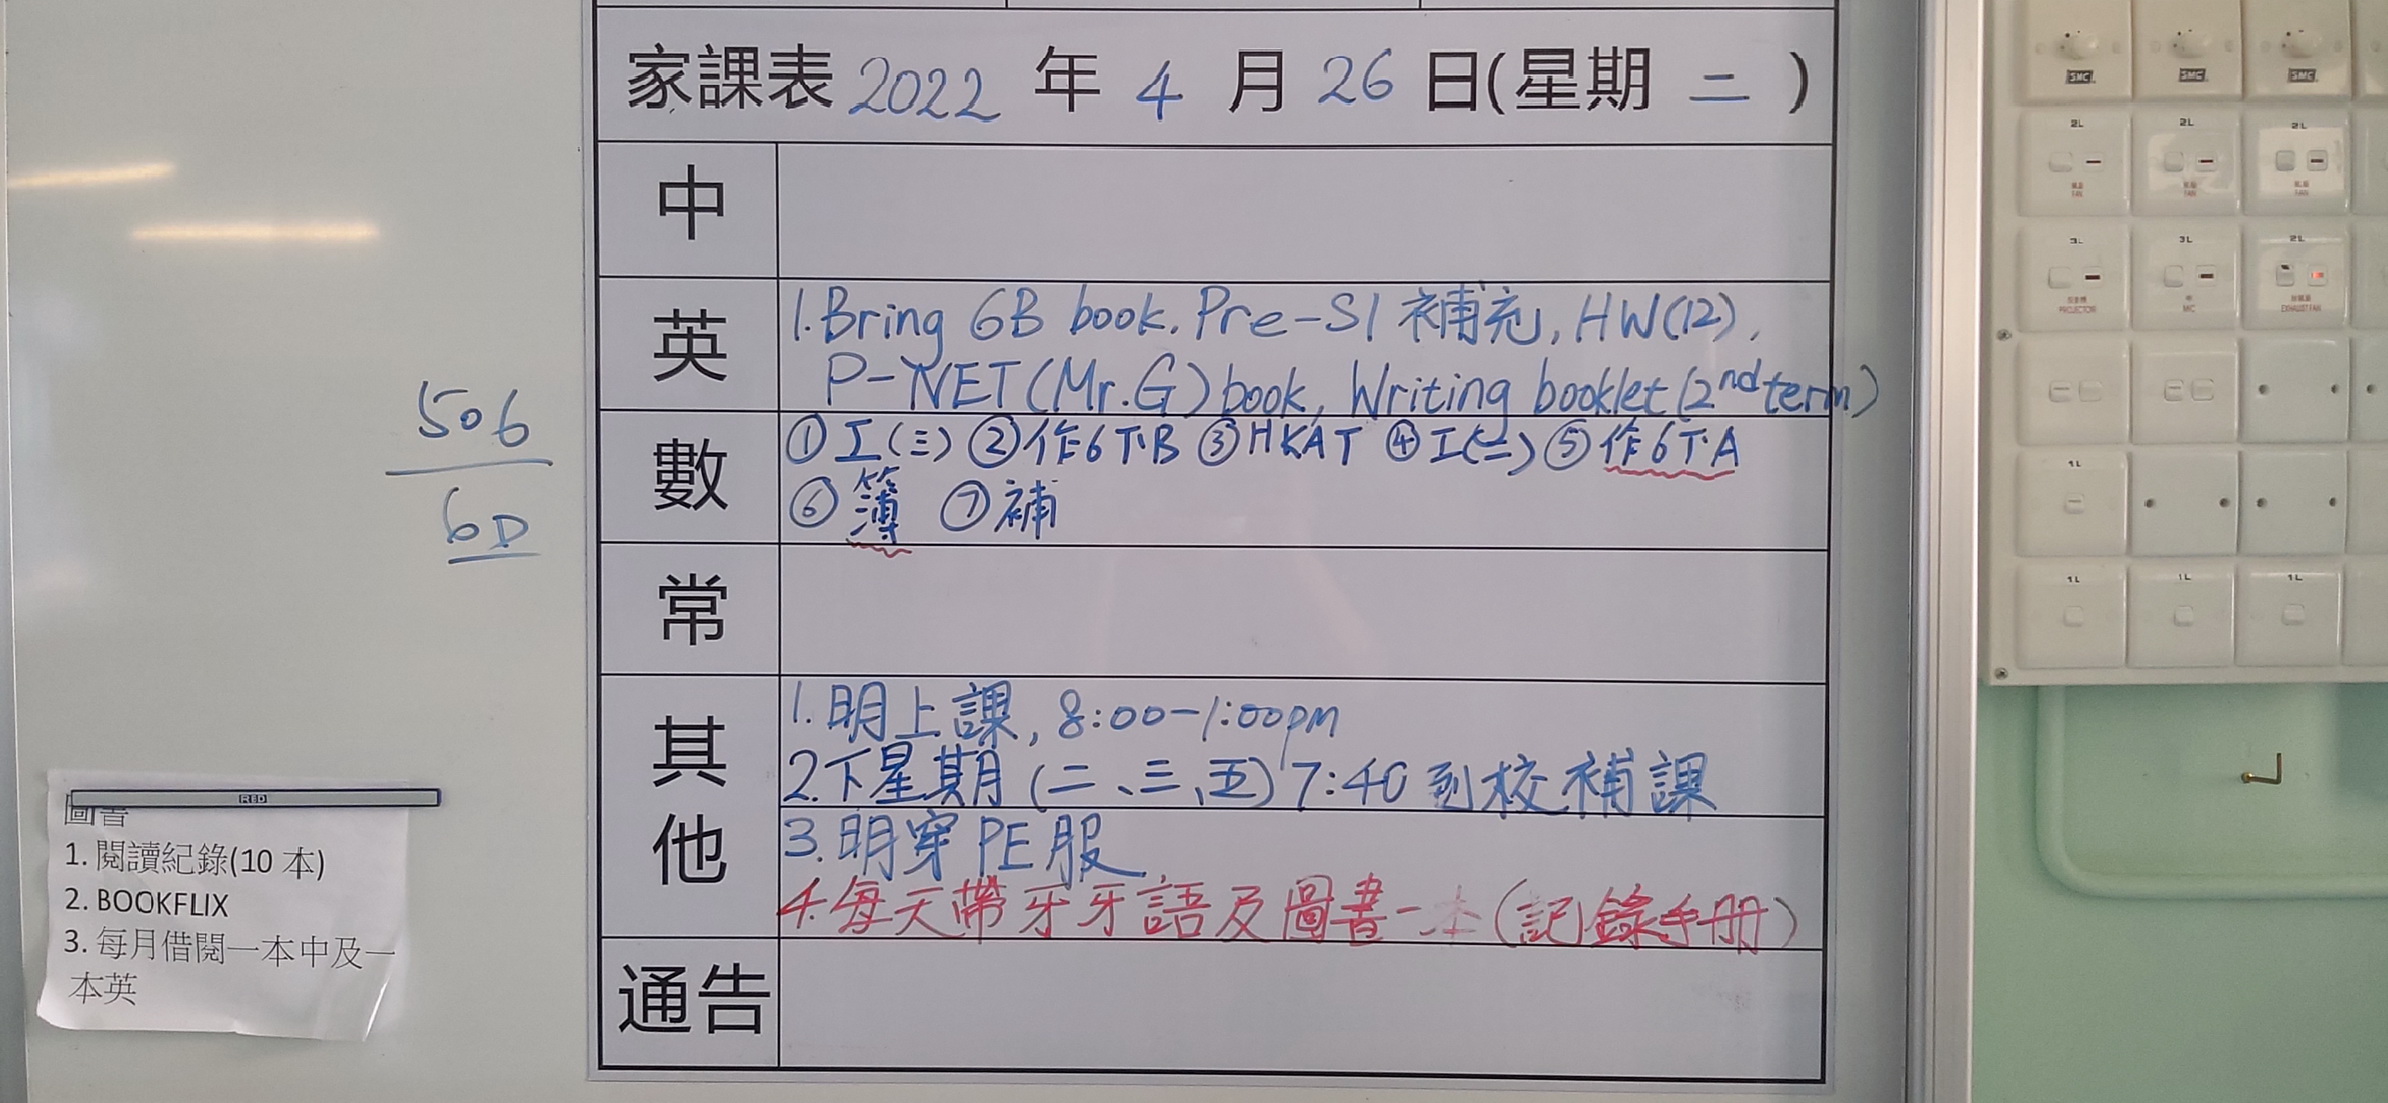 家課表 2022 年 4 月 26 日(星期 二 )
中
英
1. Bring 6B book. Pre-S1 補充, HW(12),
P-NET (Mr. G) book, Writing booklet (2nd term)
數
① 工(三) ② 作6下B ③ HKAT ④ 工(二) ⑤ 作6下A
⑥ 簿 ⑦ 補
常
其他
1. 明上課, 8:00-1:00pm
2. 下星期 (二、三、五) 7:40 到校補課
3. 明穿 PE 服
4. 每天帶牙牙語及圖書一本 (記錄手冊)
通告
506
6D
RED
圖書
1. 閱讀紀錄(10 本)
2. BOOKFLIX
3. 每月借閱一本中及一
本英
SMC SMC SMC
2L 2L 2L
FAN FAN FAN
3L 3L 2L
PROJECTOR MIC EXHAUST FAN
1L
1L 1L 1L